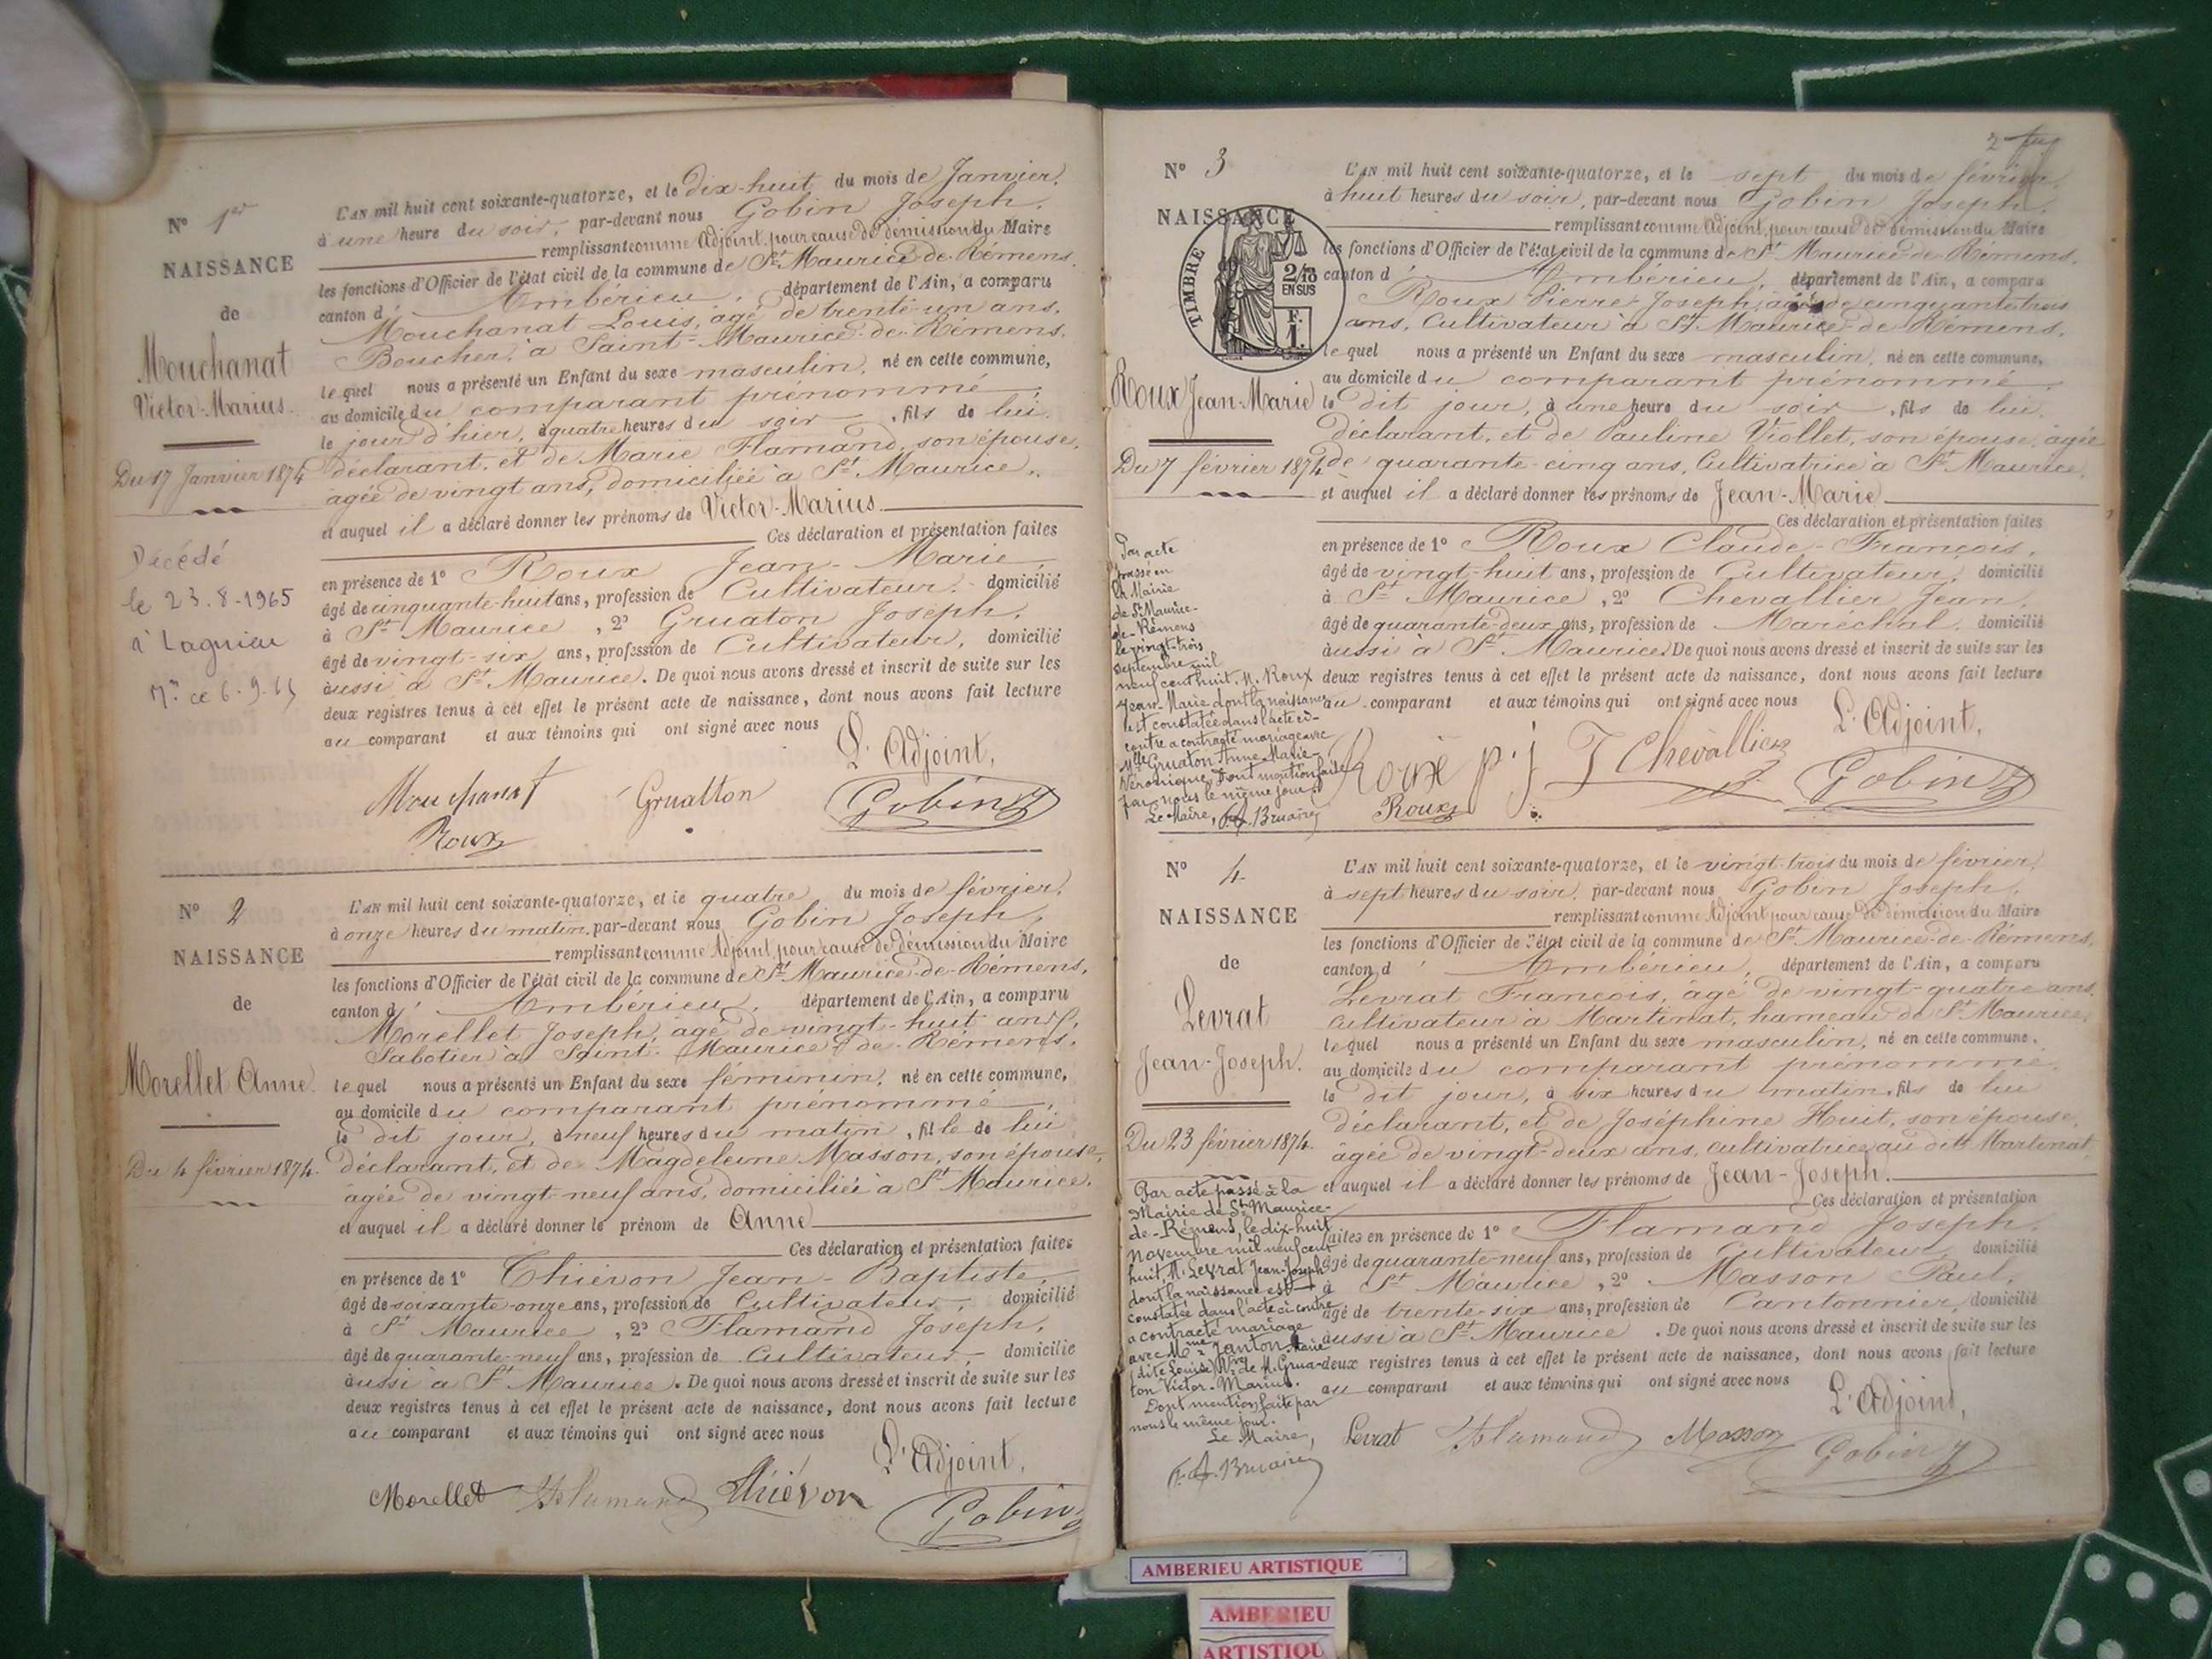 N° 1er
NAISSANCE
de
Mouchanat
Victor-Marius.
Du 17 Janvier 1874
Décédé
le 23.8.1965
à Lagnieu
L'AN mil huit cent soixante-quatorze, et le dix-huit du mois de Janvier,
à une heure du soir, par-devant nous Gobin Joseph,
remplissant comme Adjoint, pour cause de démission du Maire
les fonctions d'Officier de l'état civil de la commune de St Maurice-de-Rémens,
canton d' Ambérieu, département de l'Ain, a comparu
Mouchanat Louis, âgé de trente-un ans,
Boucher, à Saint-Maurice-de-Rémens,
lequel nous a présenté un Enfant du sexe masculin, né en cette commune,
au domicile du comparant prénommé,
le jour d'hier, à quatre heures du soir, fils de lui
déclarant, et de Marie Flamand, son épouse,
âgée de vingt ans, domiciliée à St Maurice,
et auquel il a déclaré donner les prénoms de Victor-Marius.
Ces déclaration et présentation faites
en présence de 1° Roux Jean-Marie,
âgé de cinquante-huit ans, profession de Cultivateur, domicilié
à St Maurice, 2° Gruaton Joseph,
âgé de vingt-six ans, profession de Cultivateur, domicilié
aussi à St Maurice. De quoi nous avons dressé et inscrit de suite sur les
deux registres tenus à cet effet le présent acte de naissance, dont nous avons fait lecture
au comparant et aux témoins qui ont signé avec nous
L'Adjoint,
Mouchanat Gruatton Gobin
Roux
N° 2
NAISSANCE
de
Morellet Anne.
Du 4 février 1874.
L'AN mil huit cent soixante-quatorze, et le quatre du mois de février,
à onze heures du matin, par-devant nous Gobin Joseph,
remplissant comme Adjoint, pour cause de démission du Maire
les fonctions d'Officier de l'état civil de la commune de St Maurice-de-Rémens,
canton d' Ambérieu, département de l'Ain, a comparu
Morellet Joseph, âgé de vingt-huit ans,
Sabotier à Saint-Maurice-de-Rémens,
lequel nous a présenté un Enfant du sexe féminin, né en cette commune,
au domicile du comparant prénommé,
le dit jour, à neuf heures du matin, fille de lui
déclarant, et de Magdeleine Masson, son épouse,
âgée de vingt-neuf ans, domiciliée à St Maurice,
et auquel il a déclaré donner le prénom de Anne
Ces déclaration et présentation faites
en présence de 1° Thiévon Jean-Baptiste,
âgé de soixante-onze ans, profession de Cultivateur, domicilié
à St Maurice, 2° Flamand Joseph,
âgé de quarante-neuf ans, profession de Cultivateur, domicilié
aussi à St Maurice. De quoi nous avons dressé et inscrit de suite sur les
deux registres tenus à cet effet le présent acte de naissance, dont nous avons fait lecture
au comparant et aux témoins qui ont signé avec nous
L'Adjoint,
Morellet Flamand Thiévon Gobin
N° 3
NAISSANCE
TIMBRE
2/10
EN SUS
F.
1.
Roux Jean-Marie
Du 7 février 1874
Par acte
passé en
la Mairie
de St Maurice-
de-Rémens
le vingt-trois
septembre mil
neuf cent huit, M. Roux
Jean-Marie dont la naissance
est constatée dans l'acte ci-
contre a contracté mariage avec
Mlle Gruaton Anne-Marie-
Véronique. Dont mention faite
par nous le même jour.
Le Maire, Bruaire
L'AN mil huit cent soixante-quatorze, et le sept du mois de février,
à huit heures du soir, par-devant nous Gobin Joseph,
remplissant comme Adjoint, pour cause de démission du Maire
les fonctions d'Officier de l'état civil de la commune de St Maurice-de-Rémens,
canton d' Ambérieu, département de l'Ain, a comparu
Roux Pierre-Joseph, âgé de cinquante-trois
ans, Cultivateur à St Maurice-de-Rémens,
lequel nous a présenté un Enfant du sexe masculin, né en cette commune,
au domicile du comparant prénommé,
le dit jour, à une heure du soir, fils de lui
déclarant, et de Pauline Viollet, son épouse, âgée
de quarante-cinq ans, Cultivatrice à St Maurice,
et auquel il a déclaré donner les prénoms de Jean-Marie
Ces déclaration et présentation faites
en présence de 1° Roux Claude-François,
âgé de vingt-huit ans, profession de Cultivateur, domicilié
à St Maurice, 2° Chevallier Jean,
âgé de quarante-deux ans, profession de Maréchal, domicilié
aussi à St Maurice. De quoi nous avons dressé et inscrit de suite sur les
deux registres tenus à cet effet le présent acte de naissance, dont nous avons fait lecture
au comparant et aux témoins qui ont signé avec nous
L'Adjoint,
Roux p j J Chevallier Gobin
Roux
N° 4
NAISSANCE
de
Levrat
Jean-Joseph.
Du 23 février 1874.
Par acte passé à la
Mairie de St Maurice-
de-Rémens, le dix-huit
Novembre mil neuf cent
huit, M. Levrat Jean-Joseph
dont la naissance est
constatée dans l'acte ci-contre
a contracté mariage
avec Mme Janton Marie
(dite Louise) Vve de M. Grua-
ton Victor-Marius.
Dont mention faite par
nous le même jour.
Le Maire,
Bruaire
L'AN mil huit cent soixante-quatorze, et le vingt-trois du mois de février,
à sept heures du soir, par-devant nous Gobin Joseph,
remplissant comme Adjoint pour cause de démission du Maire
les fonctions d'Officier de l'état civil de la commune de St Maurice-de-Rémens,
canton d' Ambérieu, département de l'Ain, a comparu
Levrat François, âgé de vingt-quatre ans,
Cultivateur à Martinat, hameau de St Maurice,
lequel nous a présenté un Enfant du sexe masculin, né en cette commune,
au domicile du comparant prénommé,
le dit jour, à six heures du matin, fils de lui
déclarant, et de Joséphine Huit, son épouse,
âgée de vingt-deux ans, cultivatrice au dit Martinat,
et auquel il a déclaré donner les prénoms de Jean-Joseph.
Ces déclaration et présentation
faites en présence de 1° Flamand Joseph,
âgé de quarante-neuf ans, profession de Cultivateur, domicilié
à St Maurice, 2° Masson Paul,
âgé de trente-six ans, profession de Cantonnier, domicilié
aussi à St Maurice. De quoi nous avons dressé et inscrit de suite sur les
deux registres tenus à cet effet le présent acte de naissance, dont nous avons fait lecture
au comparant et aux témoins qui ont signé avec nous
L'Adjoint,
Levrat Flamand Masson Gobin
AMBERIEU ARTISTIQUE
AMBERIEU
ARTISTIQU